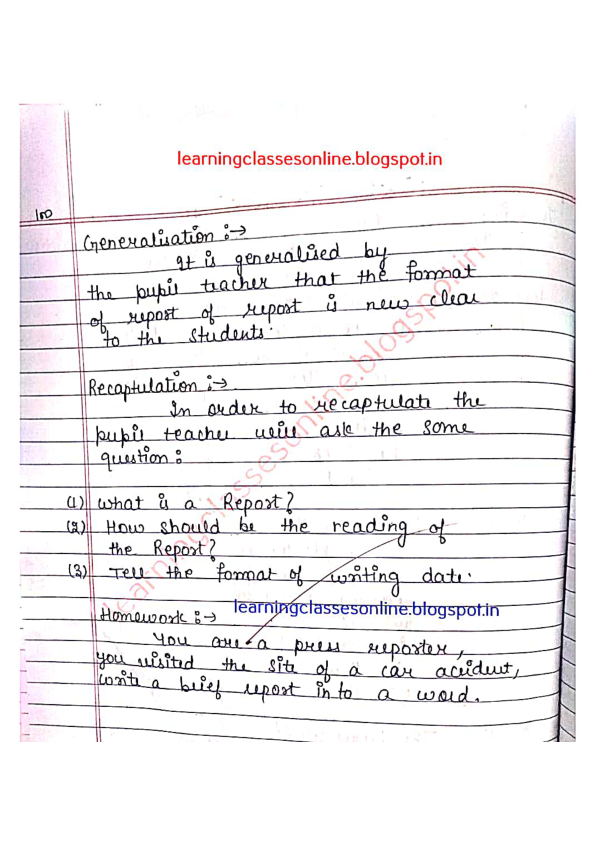 learningclassesonline.blogspot.in
100
Generalisation :→
It is generalised by
the pupil teacher that the format
of report of report is new clear
to the students.
Recaptulation :→
In order to recaptulate the
pupil teacher will ask the some
question :
(1) What is a Report?
(2) How should be the reading of
the Report?
(3) Tell the format of writing date.
learningclassesonline.blogspot.in
Homework :→
You are a press reporter,
you visited the site of a car accident,
write a brief report in to a word.
learningclassesonline.blogspot.in